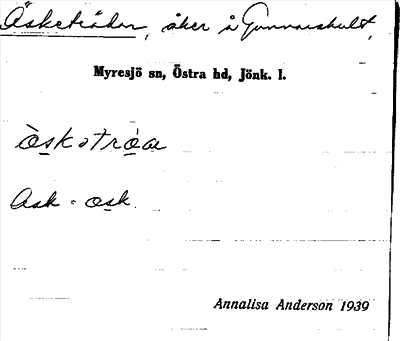 Äsketrädan, åker å Gunnarskult,
Myresjö sn, Östra hd, Jönk. l.
òskətròa
Ask = osk.
Annalisa Anderson 1939